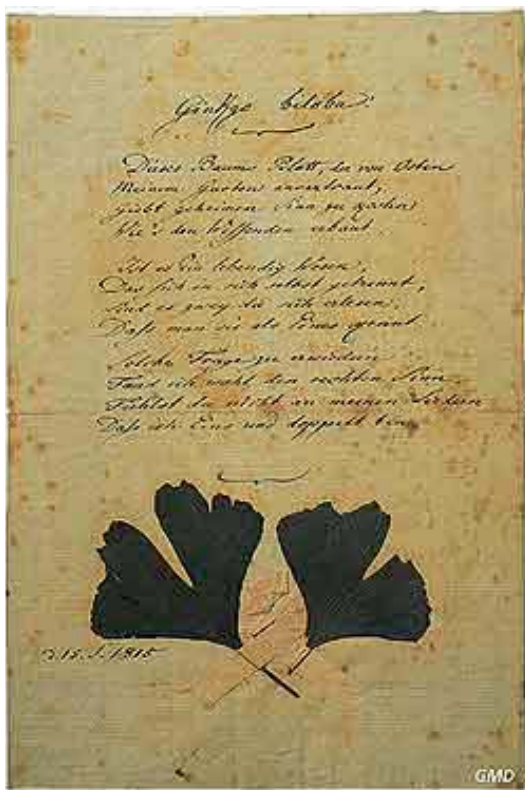 Ginkgo biloba.
Dieses Baums Blatt, der von Osten
Meinem Garten anvertraut,
Giebt geheimen Sinn zu kosten
Wie's den Wissenden erbaut.
Ist es Ein lebendig Wesen,
Das sich in sich selbst getrennt,
Sind es zwey die sich erlesen,
Dass man sie als Eines kennt.
Solche Frage zu erwiedern
Fand ich wohl den rechten Sinn,
Fühlst du nicht an meinen Liedern
Dass ich Eins und doppelt bin.
d. 15. S. 1815
GMD